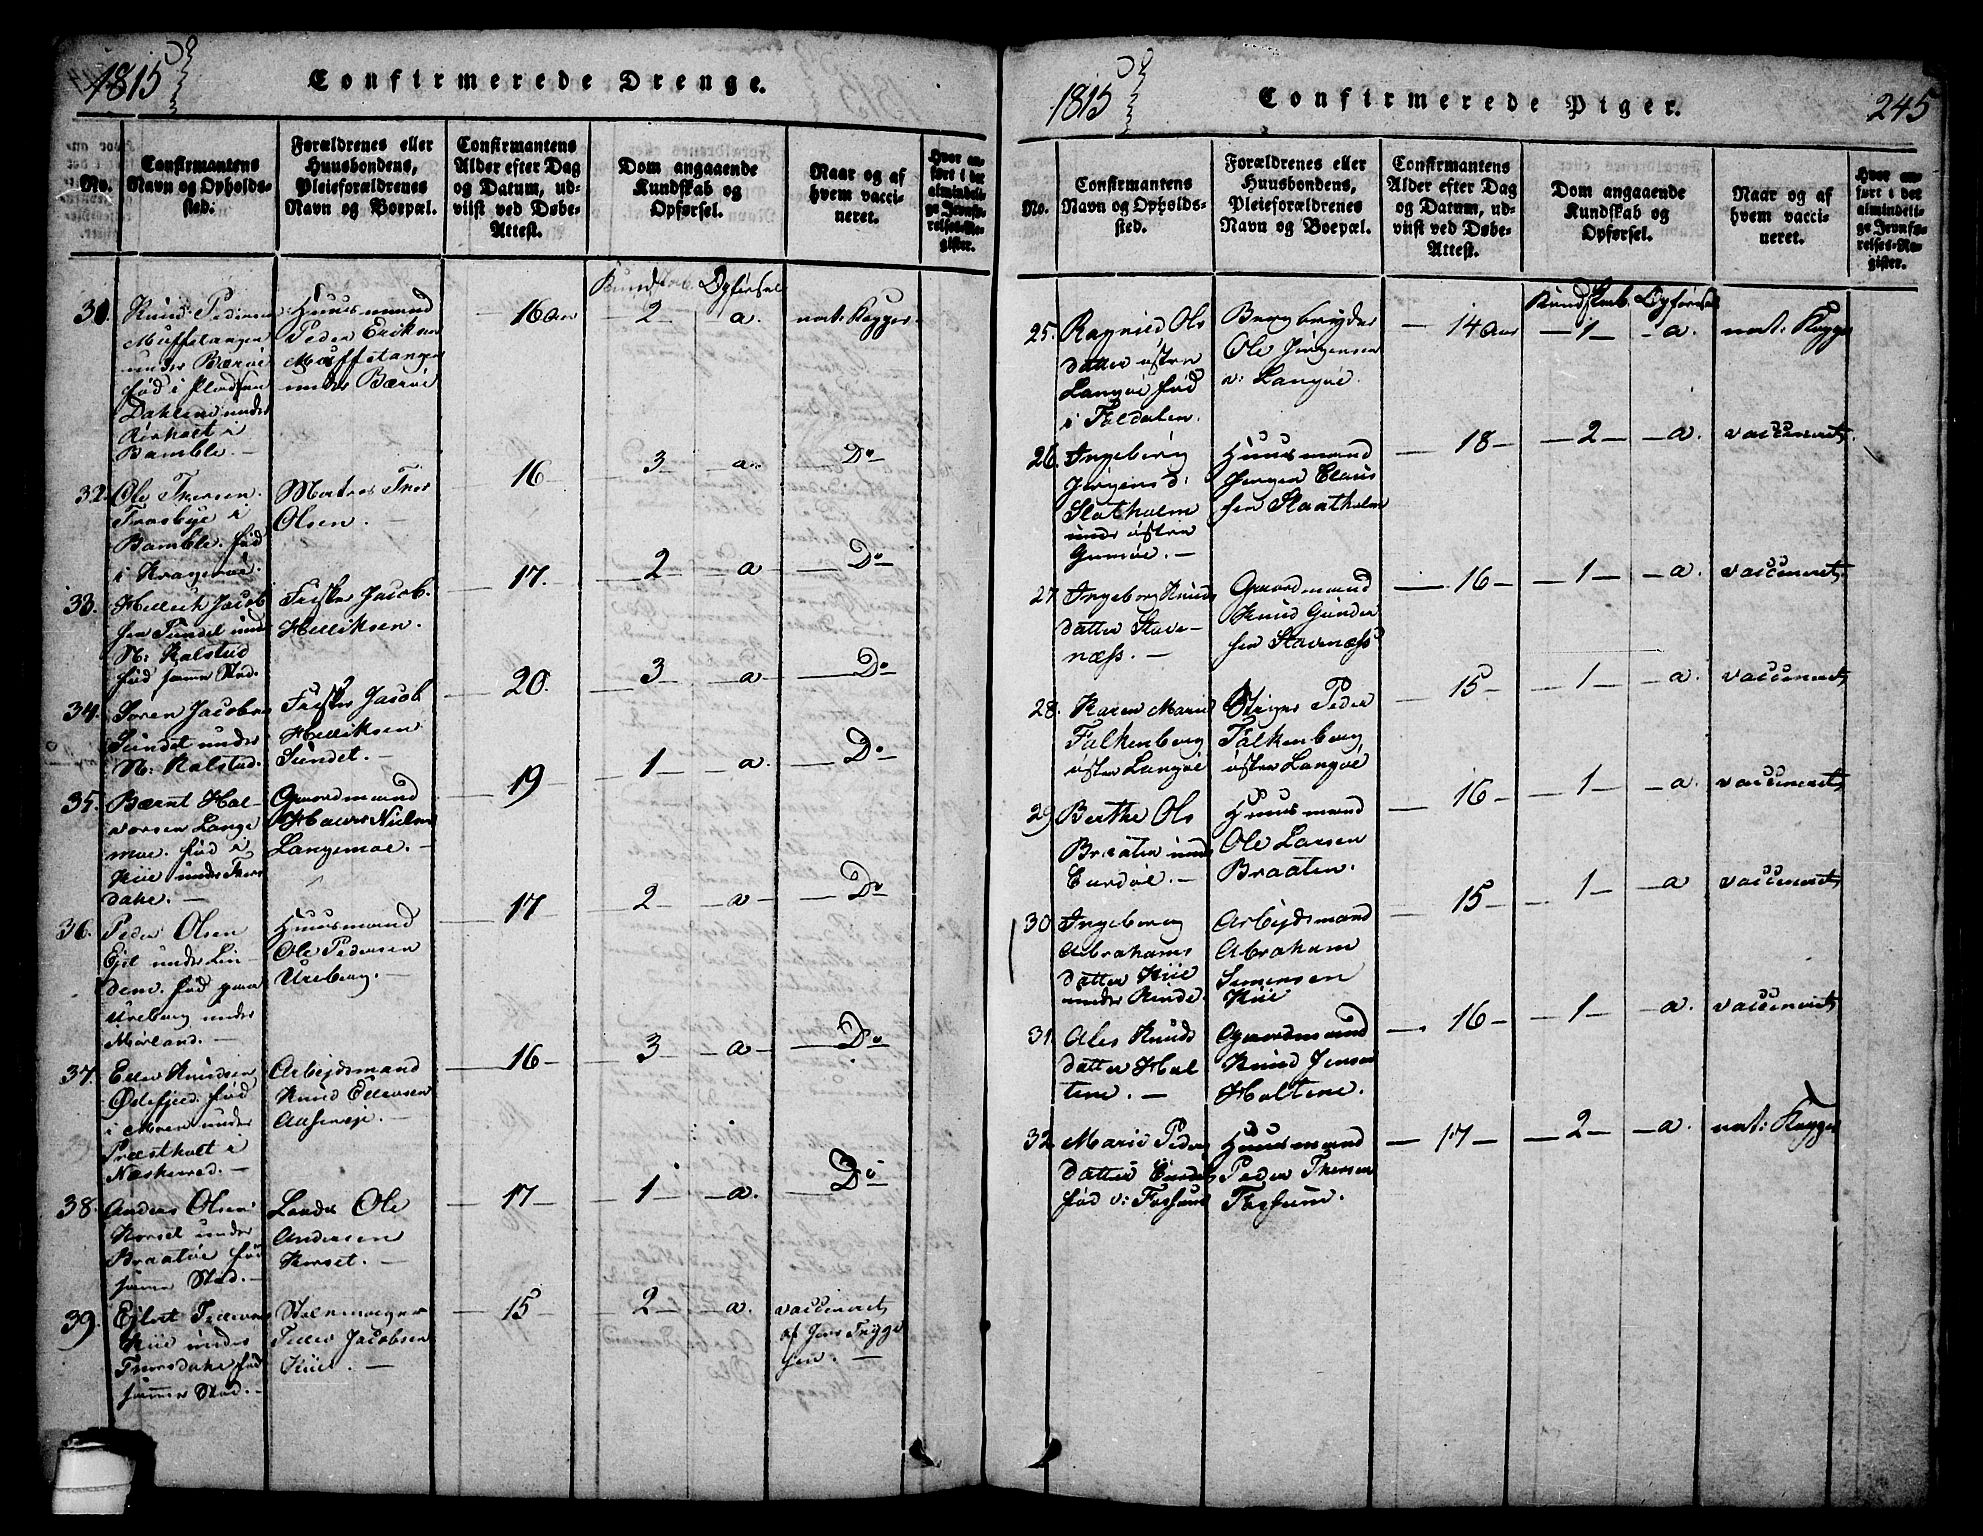 1815
Confirmerede Drenge.
No.
Confirmantens
Navn og Opholds-
sted.
Forældrenes eller
Huusbondens,
Pleieforældrenes
Navn og Boepæl.
Confirmantens
Alder efter Dag
og Datum, ud-
viist ved Døbe-
Attest.
Dom angaaende
Kundskab og
Opførsel.
Naar og af
hvem vacci-
neret.
Hvor an-
ført i det
almindeli-
ge Jevnfø-
relses-Re-
gister.
Kundskab Opførsel
31. Knud Pedersen
under Barøe
fød i Pladsen
Dahlene under
Rørholt i
Bamble. —
Huusmand
Peder Eriksen
under Barøe
16 Aar
2
a.
nat: Kopper.
32. Ole Thorsen
Trosbye i
Bamble. fød
i Kragerøe.
Matros Thor
Olsen. —
16
3
a.
Do
33. Hellik Jacob
sen Sundet under
N: Kalstad
fød samme Sted.
Fisker Jacob
Helliksen.
17.
2
a
Do
34. Søren Jacobsen
Sundet under
N: Kalstad.
Fisker Jacob
Helliksen
Sundet. —
20.
3
a.
Do
35. Bærnt Hal-
vorsen Lange
moe. fød i
Kiil under Thors
dahl. —
Gaardmand
Halvor Nielsen
Langemoe. —
19
1
a.
Do
36. Peder Olsen
Ejet under Lin
dem. fød paa
Ureberg under
Mørland. —
Huusmand
Ole Pedersen
Ureberg. —
17
2
a
Do
37. Eller Knudsen
Ødefjeld. fød
i Moen under
Præstholt i
Næskirred. —
Arbejdsmand
Knud Ellevsen
16
3
a
Do
38. Anders Olsen
Korset under
Braatøe fød
samme Stæd. —
Lands Ole
Andersen
Korset. —
17
1
a.
Do
39. Ejlert Pedersen
Kiil under
Thorsdahl fød
samme Stæd. —
Peder Jacobsen
Kiil. —
15
2
a.
vaccineret
af Jens Trygge
sen. —
1815
Confirmerede Piger.
245
No.
Confirmantens
Navn og Opholds-
sted.
Forældrenes eller
Huusbondens,
Pleieforældrenes
Navn og Boepæl.
Confirmantens
Alder efter Dag
og Datum, ud-
viist ved Døbe-
Attest.
Dom angaaende
Kundskab og
Opførsel.
Naar og af
hvem vacci-
neret.
Hvor an-
ført i det
almindeli-
ge Jevnfø-
relses-Re-
gister.
Kundskab Opførsel
25. Ragnild Ols
datter østre
Langøe fød
i Toldalen.
Bergbryder
Ole Jørgensen
v: Langøe.
14 Aar
1
a.
nat: Kopper
26. Ingeborg
Jørgens d:
Slatholm
under østre
Gumøe. —
Huusmand
Jørgen Claus
sen Slaatholm
18
2
a.
vaccineret.
27. Ingeborg Knuds
datter Stave-
næss. —
Gaardmand
Knud Gunder
sen Stavenæss
16
1
a.
vaccineret
28. Karen Marie
Falkenberg
østre Langøe
Stiger Peder
Falkenberg
østre Langøe
15
1
a.
vaccineret
29. Berthe Ols
Braaten under
Huusmand
Ole Larsen
Braaten.
16
1
a.
vaccineret
30. Ingeborg
Abrahams
datter Kiil
under Rinde.
Arbejdsmand
Abraham
Simensen
Kiil
15
1
a
vaccineret
31. Ales Knuds
datter Hol
tene. —
Gaardmand
Knud Jensen
Holtene.
16
1
a.
vaccineret
32. Marie Peders
datter
fød v: Fossum
Huusmand
Peder Thorsen
Fossum.
17
2
a.
nat: Kopper